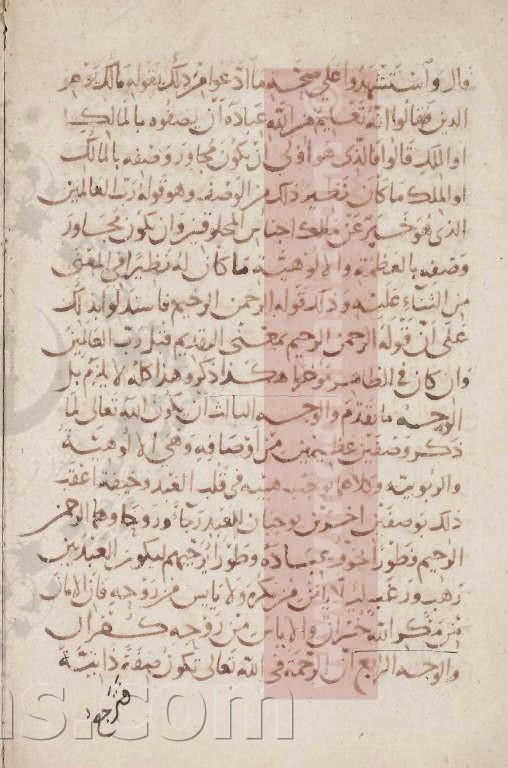 قال واستشهدوا على صحة ما ادعوا من ذلك بقوله مالك يوم
الدين فقالوا انه تعليم من الله عباده ان يصفوه بالمالك
او الملك قالوا فالذي هو اولى ان يكون مجاور وصفه بالمالك
او الملك ما كان نظير ذلك من الوصف وهو قوله رب العالمين
الذي هو خبر عن ملك اجناس المخلوقين وان يكون مجاور
وصفه بالعظمة والالوهية ما كان له نظيرا في المعنى
من الثناء عليه وذلك قوله الرحمن الرحيم فاستدلوا بذلك
على ان قوله الرحمن الرحيم بمعنى المقديم قبل رب العالمين
وان كان في الظاهر موخرا هكذا ذكر وهذا كله لا يلزم بل
الوجه ما تقدم والوجه الثالث ان يكون الله تعالى لما
ذكر وصفين عظيمين من اوصافه وهي الالوهية
والربوبية وكلاهما يوجب هيبة في قلب العبد وخيفة اعقب
ذلك بوصفين اخرين يوجبان للعبد رجاء وروحا وهما الرحمن
الرحيم فطورا يخوف عباده وطورا يرجيهم ليكون العبد بين
رهب ورغب لئلا يامن من مكره ولا ياس من روحه فان الامان
من مكر الله خسران والاياس من روحه كفران
والوجه الرابع ان الرحمة في الله تعالى تكون صفة ذاتية
ns.com